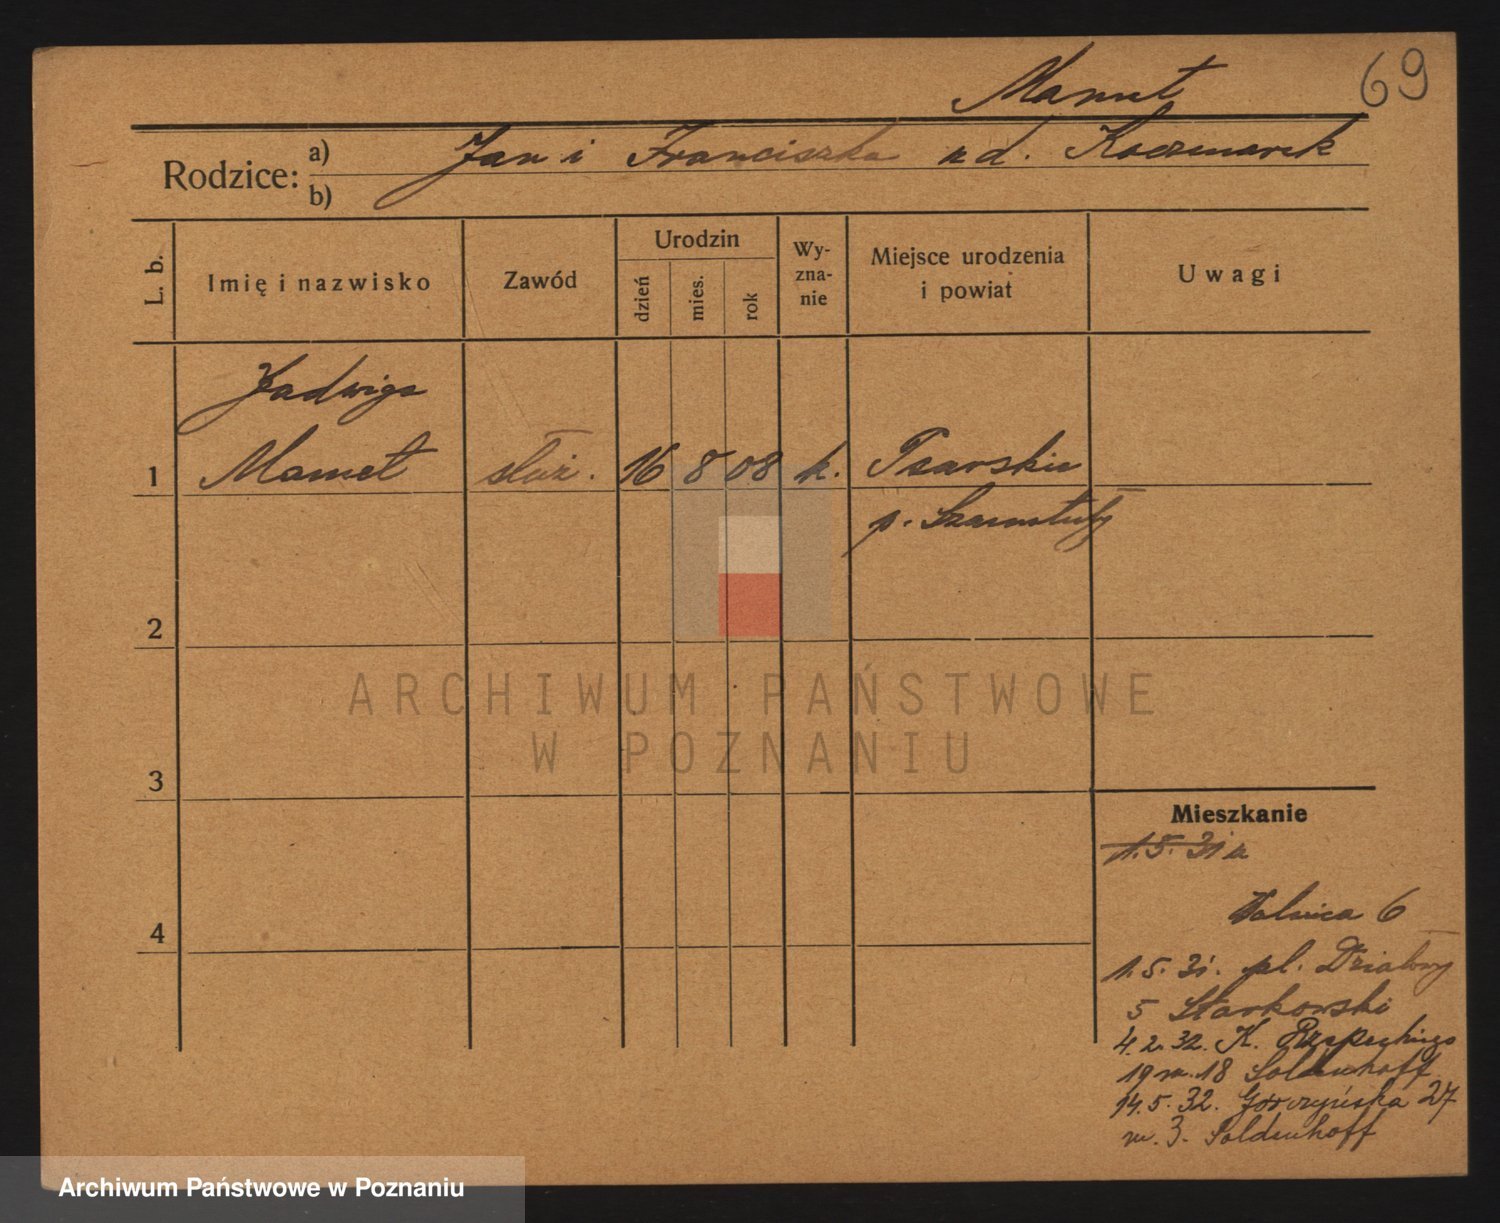 69
Mamet
Rodzice: a) Jan i Franciszka z d. Kaczmarek
b)
L. b. Imię i nazwisko Zawód Urodzin dzień mies. rok Wyznanie Miejsce urodzenia i powiat Uwagi
Jadwiga
1 Mamet służ. 16 8 08 k. Psarskie
p. Szamotuły
2
3
4
Mieszkanie
1.5.31 u
Wolnica 6
1.5.31. pl. Działowy
5 Starkowski
4.2.32. K. Rzepeckiego
19 m. 18 Soldenhoff
14.5.32. Górczyńska 27
m. 3. Soldenhoff
ARCHIWUM PAŃSTWOWE
W POZNANIU
Archiwum Państwowe w Poznaniu